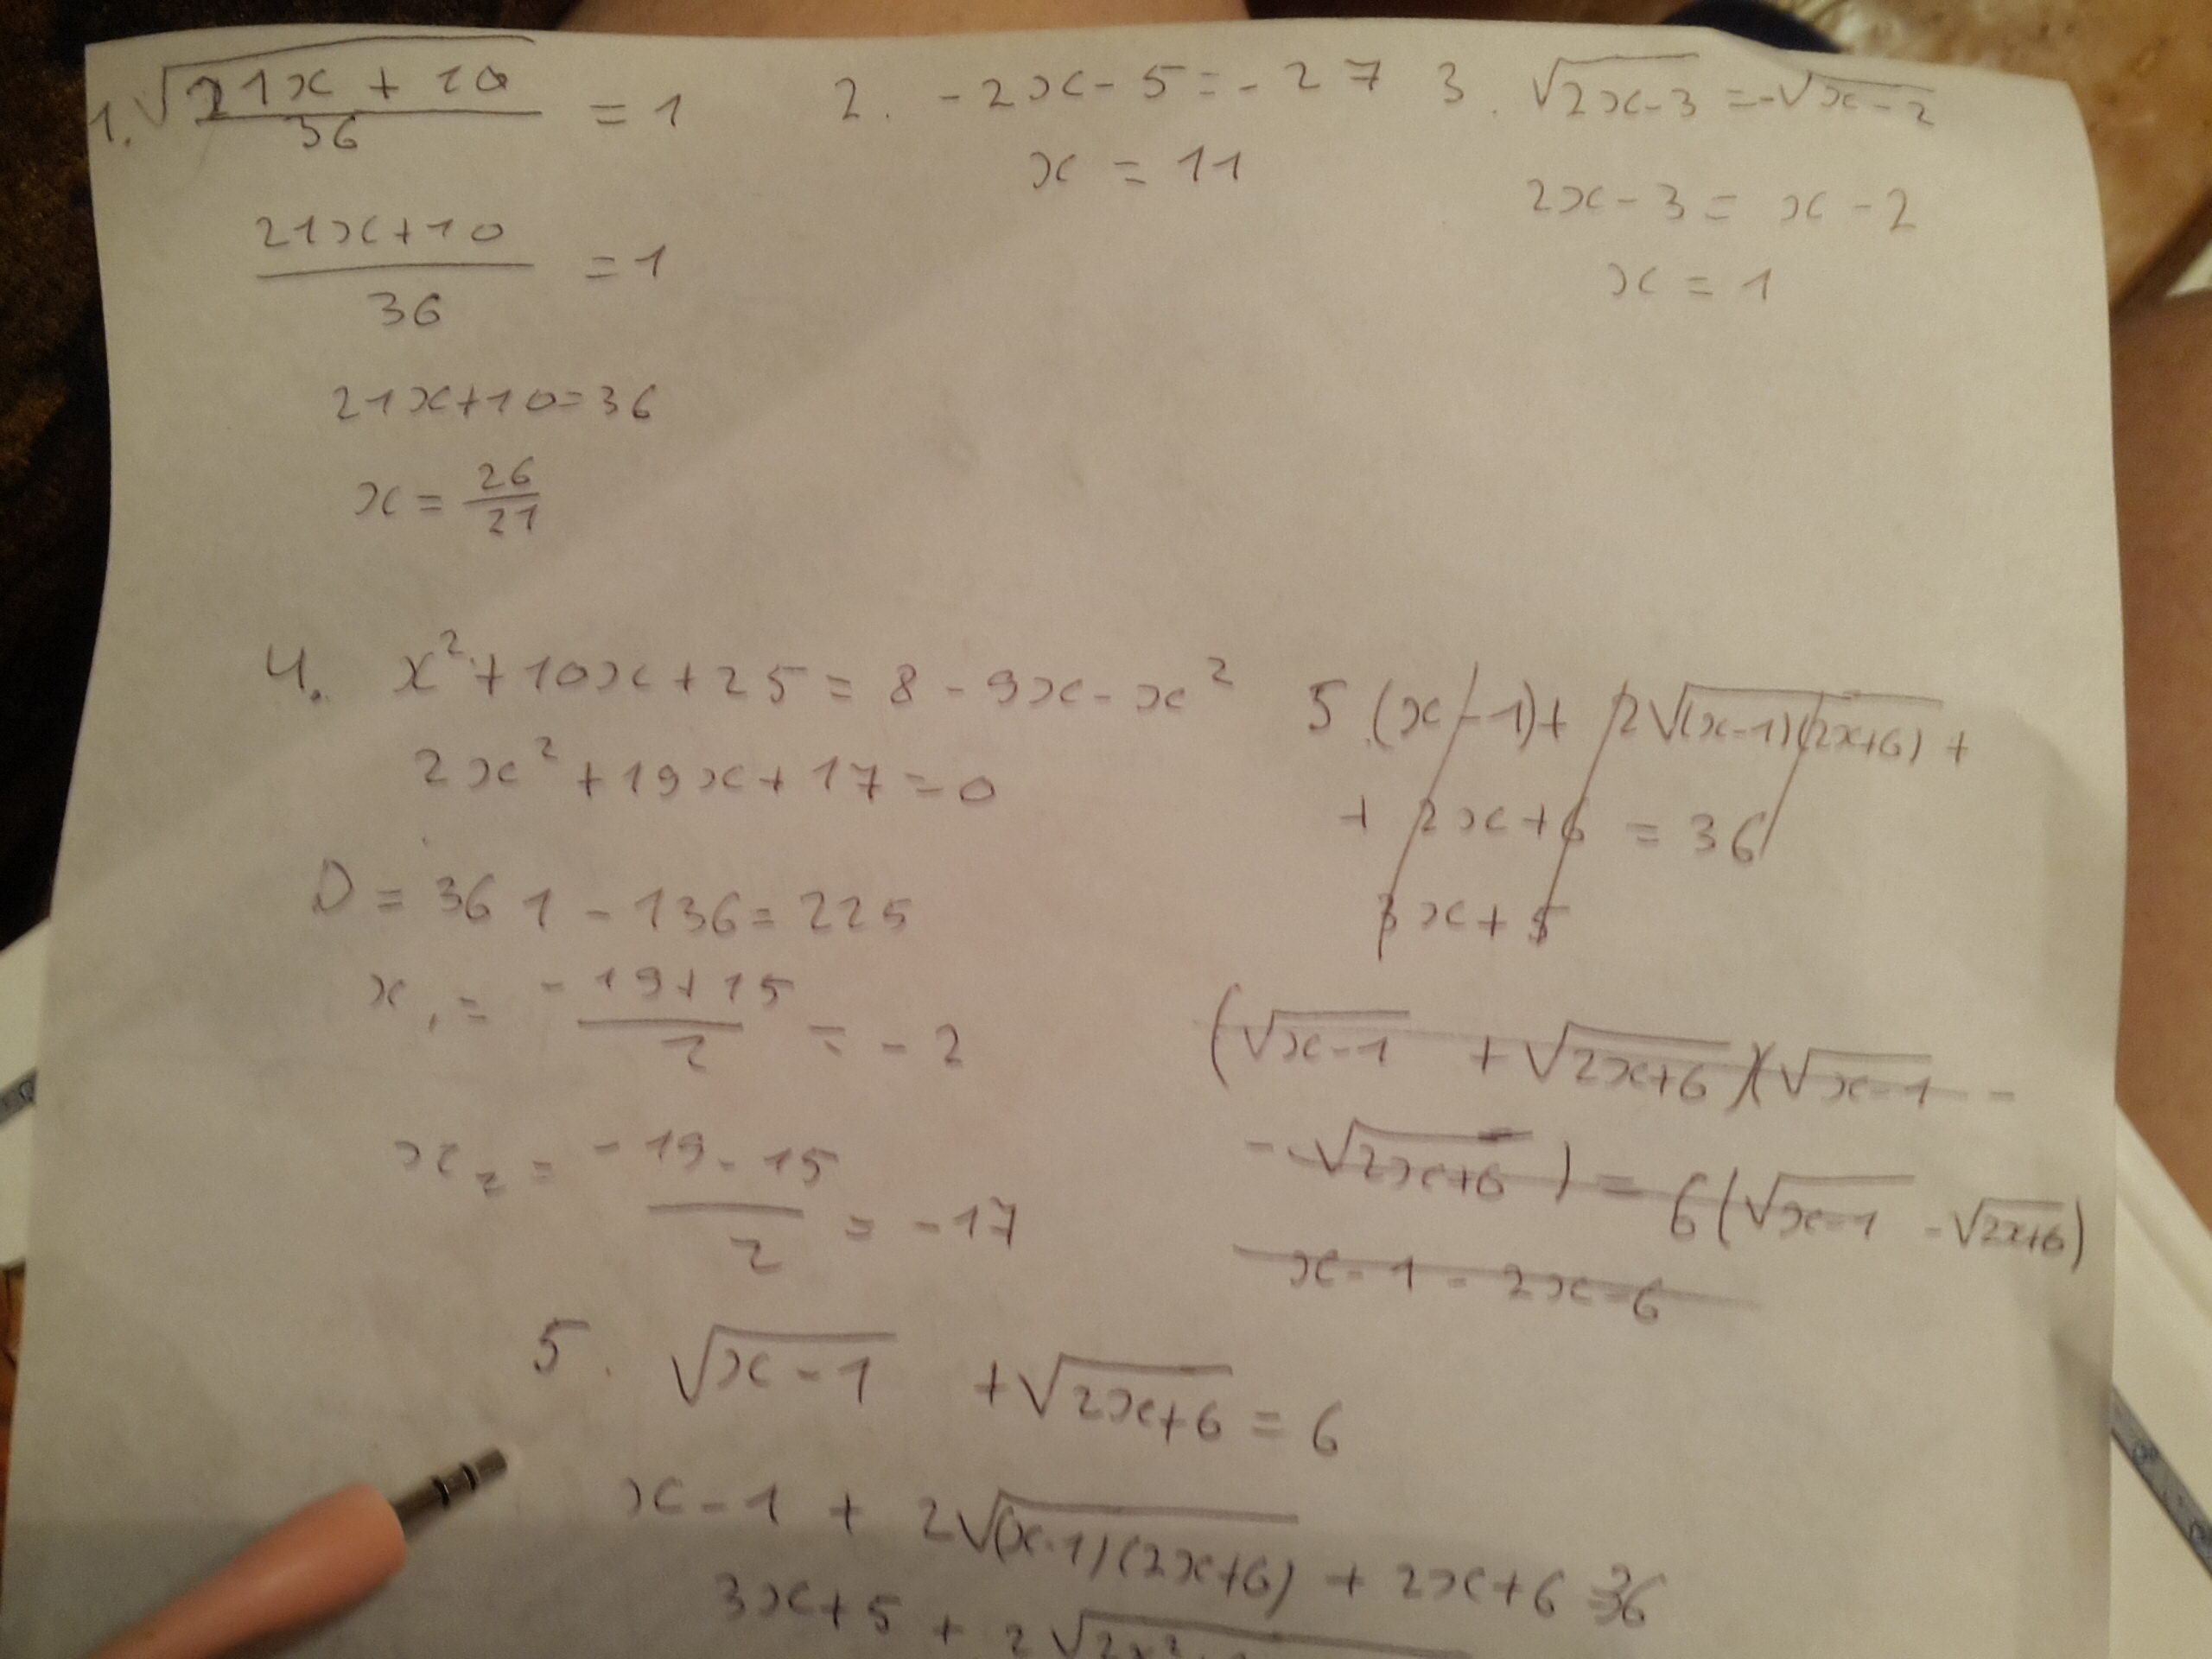 1. √(21x + 10)/36 = 1
21x+10/36 = 1
21x+10=36
x = 26/21
2. -2x-5=-27
x = 11
3. √2x-3 = -√x-2
2x-3 = x-2
x = 1
4. x²+10x+25 = 8-9x-x²
2x²+19x+17=0
D = 361-136=225
x₁ = -19+15/2 = -2
x₂ = -19-15/2 = -17
5 (x-1)+ 2√(x-1)(2x+6) +
+ 2x+6 = 36
3x+5
(√x-1 + √2x+6)(√x-1 -
- √2x+6) = 6(√x-1 - √2x+6)
x-1-2x-6
5. √x-1 + √2x+6 = 6
x-1 + 2√(x-1)(2x+6) + 2x+6 = 36
3x+5 + 2√2x²